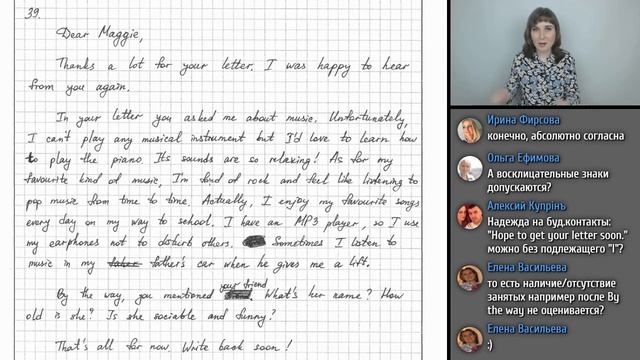 39.
Dear Maggie,
Thanks a lot for your letter. I was happy to hear
from you again.
In your letter you asked me about music. Unfortunately,
I can't play any musical instrument but I'd love to learn how
to play the piano. Its sounds are so relaxing! As for my
favourite kind of music, I'm fond of rock and feel like listening to
pop music from time to time. Actually, I enjoy my favourite songs
every day on my way to school. I have an MP3 player, so I use
my earphones not to disturb others. Sometimes I listen to
music in my father's car when he gives me a lift.
By the way, you mentioned your friend. What's her name? How
old is she? Is she sociable and funny?
That's all for now. Write back soon!
Ирина Фирсова
конечно, абсолютно согласна
Ольга Ефимова
А восклицательные знаки
допускаются?
Алексий Купрiнъ
Надежда на буд.контакты:
"Hope to get your letter soon."
можно без подлежащего "I"?
Елена Васильева
то есть наличие/отсутствие
занятых например после By
the way не оценивается?
Елена Васильева
:)